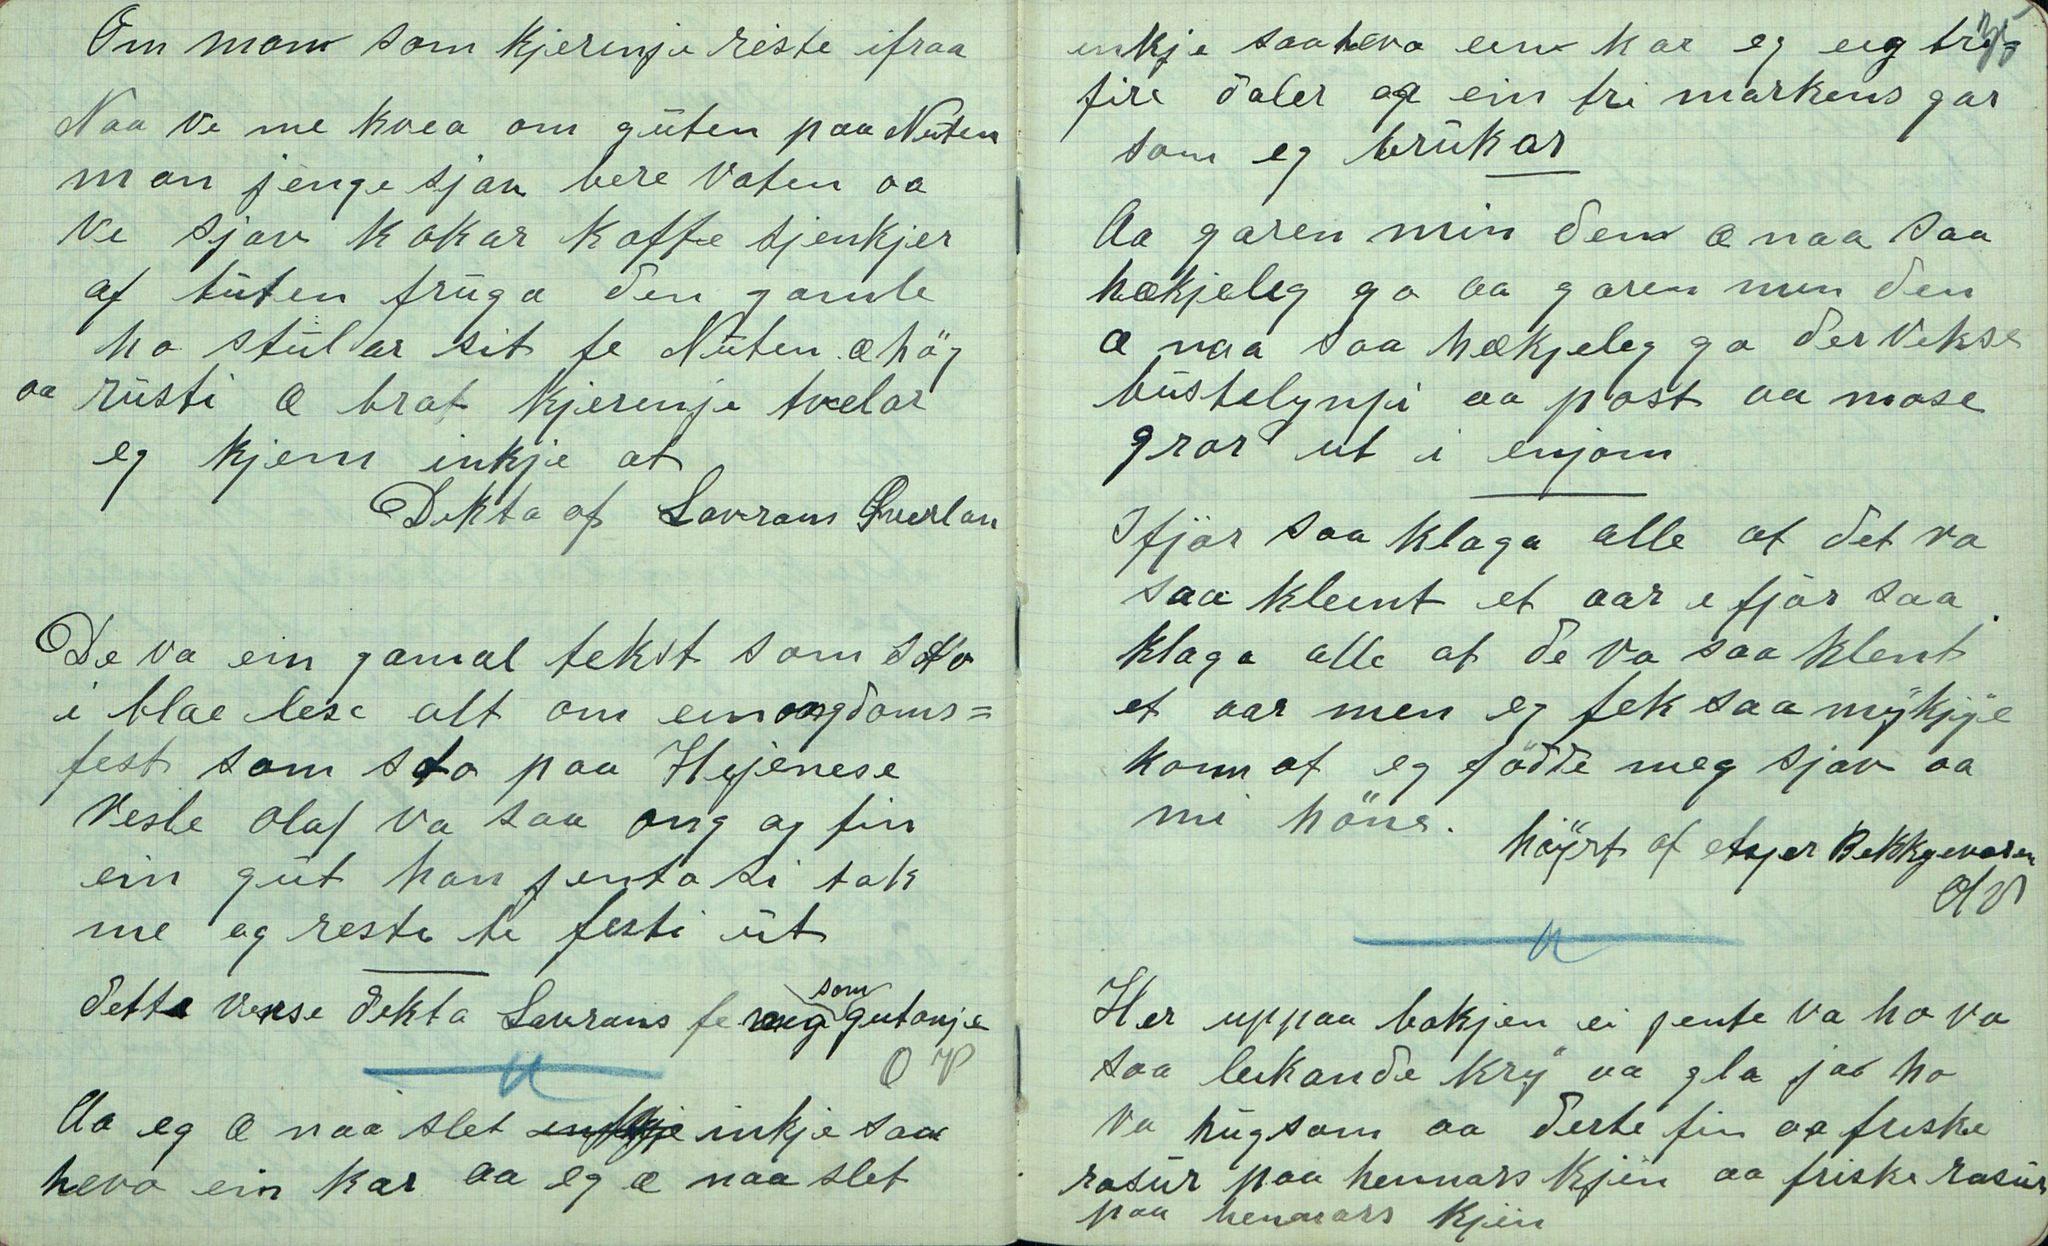 Om mon som kjerinje reiste ifraa
Naa ve me kvea om guten paa Nuten
mon jenge sjav bere vaten aa
ve sjav kokar koffe sjenkjer
af tuten fruga den gamle
ho stular sit te Nuten æ hög
aa rusti æ brat kjerinje tvelar
eg kjem inkje at
Dikta af Lavrans
De va ein gamal tekst som sto
i blae lese alt om ein ongdoms=
fest som sto paa Hejenese
Vesle Olaf va saa ong og fin
ein gut han jenta si tok
me og reste te festi ut
dette verse dikta Lavrans fe meg som gutonje
O V
Aa eg æ naa slet inkje saa
heva ein kar aa eg æ naa slet
35
inkje saa heva ein kar eg eig tri=
fire daler og ein fri markens gar
som eg brukar
Aa garen min den æ naa saa
hækjeleg go aa garen min den
æ naa saa hækjeleg go der vekse
bustelynji aa post aa mose
gror ut i enjom
Ifjör saa klaga alle at det va
saa kleint et aar i fjör saa
klaga alle at de va saa klent
et aar men eg fek saa mykjye
konn at eg födde meg sjav aa
mi höns.
höyrt af
O V
Her uppaa bakjen ei jente va ho va
saa leikande kry aa gla jao ho
va hugsom aa deste fin aa friske
rosur paa hennars kjin aa friske rosur
paa hennars kjin